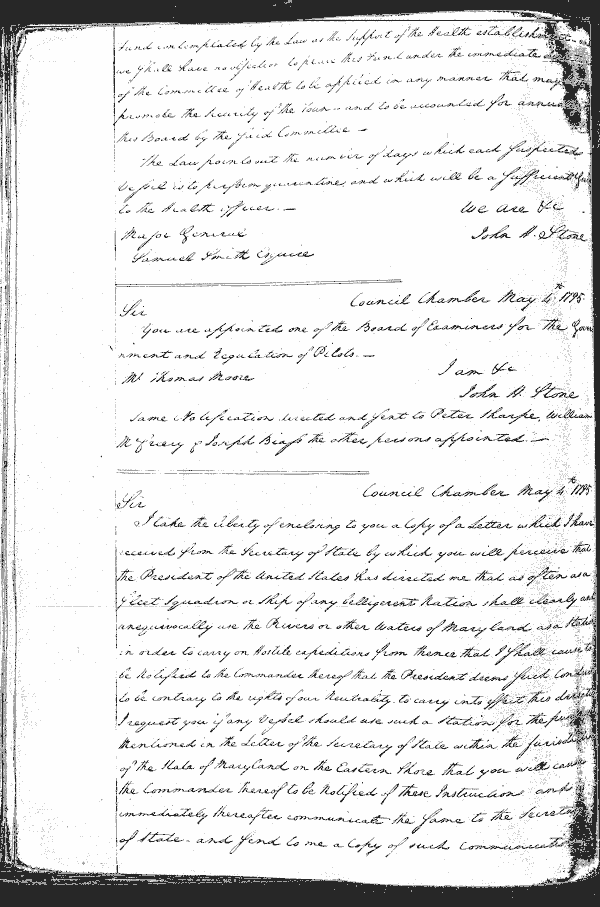 fund contemplated by the Law as the Support of the Health establishment
we shall have no objection to place this Fund under the immediate
of the Committee of Health to be applied in any manner that may
promote the Security of the Town - and to be accounted for annua
this Board by the said Committee -
The Law points out the number of days which each suspected
Vessel is to perform quarantine, and which will be a sufficient
to the Health officer. -
We are &c
Major General
John H. Stone
Samuel Smith Esquire
Council Chamber May 4th 1795
Sir
You are appointed one of the Board of Examiners for the Gover
nment and Regulation of Pilots. -
I am &c
Mr Thomas Moore
John H. Stone
Same Notification directed and sent to Peter Sharpe, William
& Joseph the other persons appointed. -
Council Chamber May 4th 1795
Sir
I take the liberty of enclosing to you a Copy of a Letter which I have
received from the Secretary of State by which you will perceive that
the President of the United States has directed me that as often as a
fleet Squadron or Ship of any belligerent Nation shall clearly and
unequivocally use the Rivers or other Waters of Maryland as a Station
in order to carry on Hostile expeditions from thence that I shall cause to
be Notified to the Commander thereof that the President deems such Conduct
to be contrary to the rights of our Neutrality to carry into effect this
I request you if any Vessel should use such a Station for the
mentioned in the Letter of the Secretary of State within the Jurisdiction
of the State of Maryland on the Eastern Shore that you will cause
the Commander thereof to be Notified of these Instructions and
immediately thereafter communicate the same to the Secretary
of State - and send to me a Copy of such Communication